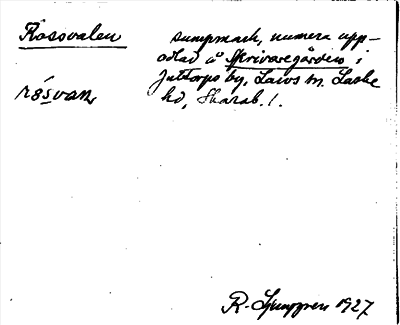 Rossvalen
råsvan
sumpmark, numera upp-
odlad å Skrivaregården i
Juttorps by, Laivs m. Laske
hd, Skarab. l.
R. Ljunggren 1927